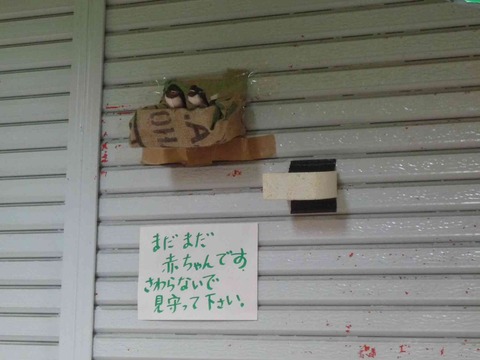 .A
OH
まだまだ
赤ちゃんです。
さわらないで
見守って下さい。